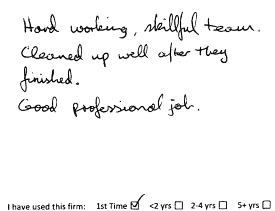 Hard working, skillful team.
Cleaned up well after they
finished.
Good professional job.
I have used this firm: 1st Time ☑ <2 yrs ☐ 2-4 yrs ☐ 5+ yrs ☐